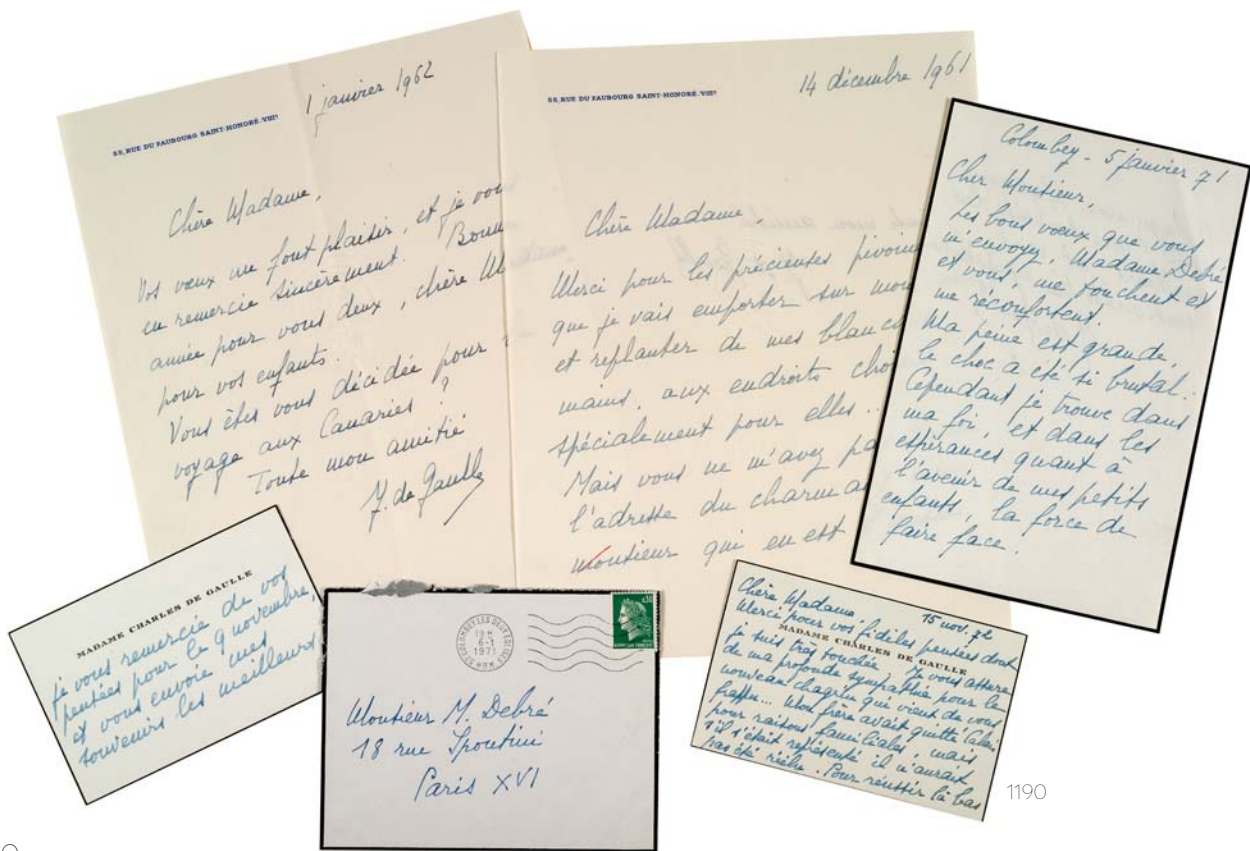 55, RUE DU FAUBOURG SAINT-HONORÉ. VIIIe
1 janvier 1962
Chère Madame,
Vos vœux me font plaisir, et je vous
en remercie sincèrement. Bonne
année pour vous deux, chère
pour vos enfants.
Vous êtes vous décidée pour
voyage aux Canaries ?
Toute mon amitié
Y. de Gaulle
55, RUE DU FAUBOURG SAINT-HONORÉ. VIIIe
14 décembre 1961
Chère Madame,
Merci pour les précieuses
que je vais emporter sur
et replanter de mes blanches
mains, aux endroits
spécialement pour elles..
Mais vous ne m'avez
l'adresse du
monsieur qui en est
Colombey - 5 janvier 71
Cher Monsieur,
Les bons vœux que vous
m'envoyez, Madame Debré
et vous, me touchent et
me réconfortent.
Ma peine est grande,
le choc a été si brutal..
Cependant je trouve dans
ma foi, et dans les
espérances quant à
l'avenir de mes petits
enfants, la force de
faire face.
MADAME CHARLES DE GAULLE
je vous remercie de vos
pensées pour le 9 novembre,
et vous envoie mes
souvenirs les meilleurs
52 COLOMBEY LES DEUX EGLISES
6-1
1971
0,30
Monsieur M. Debré
18 rue Spontini
Paris XVI
15 nov. 72
Chère Madame,
Merci pour vos fidèles pensées dont
je suis très touchée. Je vous assure
MADAME CHARLES DE GAULLE
de ma profonde sympathie pour le
nouveau chagrin qui vient de vous
frapper... Mon frère avait quitté Calais
pour raisons familiales, mais
s'il s'était représenté il n'aurait
pas été réélu. Pour réussir là bas
1190